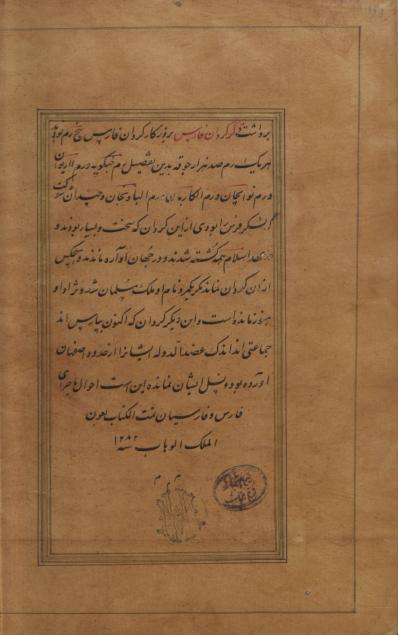 برداشت ذکر کردان فارس بروزکار کردان فارس پنج رم بوده
هر یک رم صد هزار حومه بدین تفصیل رم جیلویه و رم الریوان
و رم لوالجان و رم الکاریان و رم البازنجان و چندان شوکت
لشکر فرس را بودی ازین کردان که سخت بسیار بودند و
عهد اسلام همه کشته شدند و در جهان آواره ماندند و هیچکس
از آن کردان نماند مکر یک مرد نام او علک مسلمان شد و نژاد او
هنوز مانده است و این دیکر کردان که اکنون بپارس اند
جماعتی اند اند که عضدالدوله ایشانرا از حدود صفهان
آورده بود و نسل ایشان مانده این است احوال
فارس و فارسیان تمت الکتاب بعون
الملک الوهاب سنه ۱۲۸۲
م م م